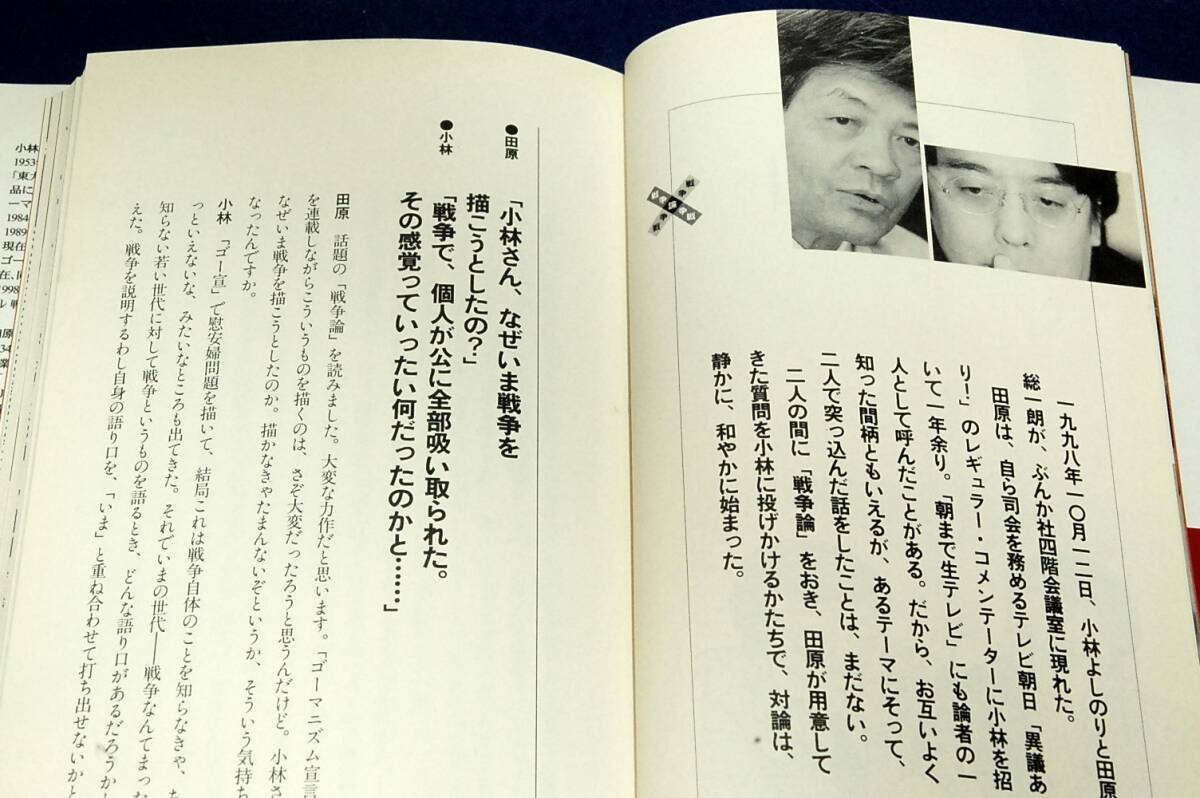 一九九八年一〇月一二日、小林よしのりと田原
総一朗が、ぶんか社四階会議室に現れた。
田原は、自ら司会を務めるテレビ朝日「異議あ
り！」のレギュラー・コメンテーターに小林を招
いて一年余り。「朝まで生テレビ」にも論者の一
人として呼んだことがある。だから、お互いよく
知った間柄ともいえるが、あるテーマにそって、
二人で突っ込んだ話をしたことは、まだない。
二人の間に「戦争論」をおき、田原が用意して
きた質問を小林に投げかけるかたちで、対論は、
静かに、和やかに始まった。
●田原 「小林さん、なぜいま戦争を
描こうとしたの？」
●小林 「戦争で、個人が公に全部吸い取られた。
その感覚っていったい何だったのかと……」
田原 話題の「戦争論」を読みました。大変な力作だと思います。「ゴーマニズム宣言
を連載しながらこういうものを描くのは、さぞ大変だったろうと思うんだけど。小林さ
なぜいま戦争を描こうとしたのか。描かなきゃたまんないぞというか、そういう気持ち
なったんですか。
小林 「ゴー宣」で慰安婦問題を描いて、結局これは戦争自体のことを知らなきゃ、ち
っといえないな、みたいなところも出てきた。それでいまの世代──戦争なんてまった
知らない若い世代に対して戦争というものを語るとき、どんな語り口があるだろうか
えた。戦争を説明するわし自身の語り口を、「いま」と重ね合わせて打ち出せないかと
小林
1953
「東大
品に
ーマ
1984
1989
現在
ゴー
在、同
1998
ル 戦
原
34
業